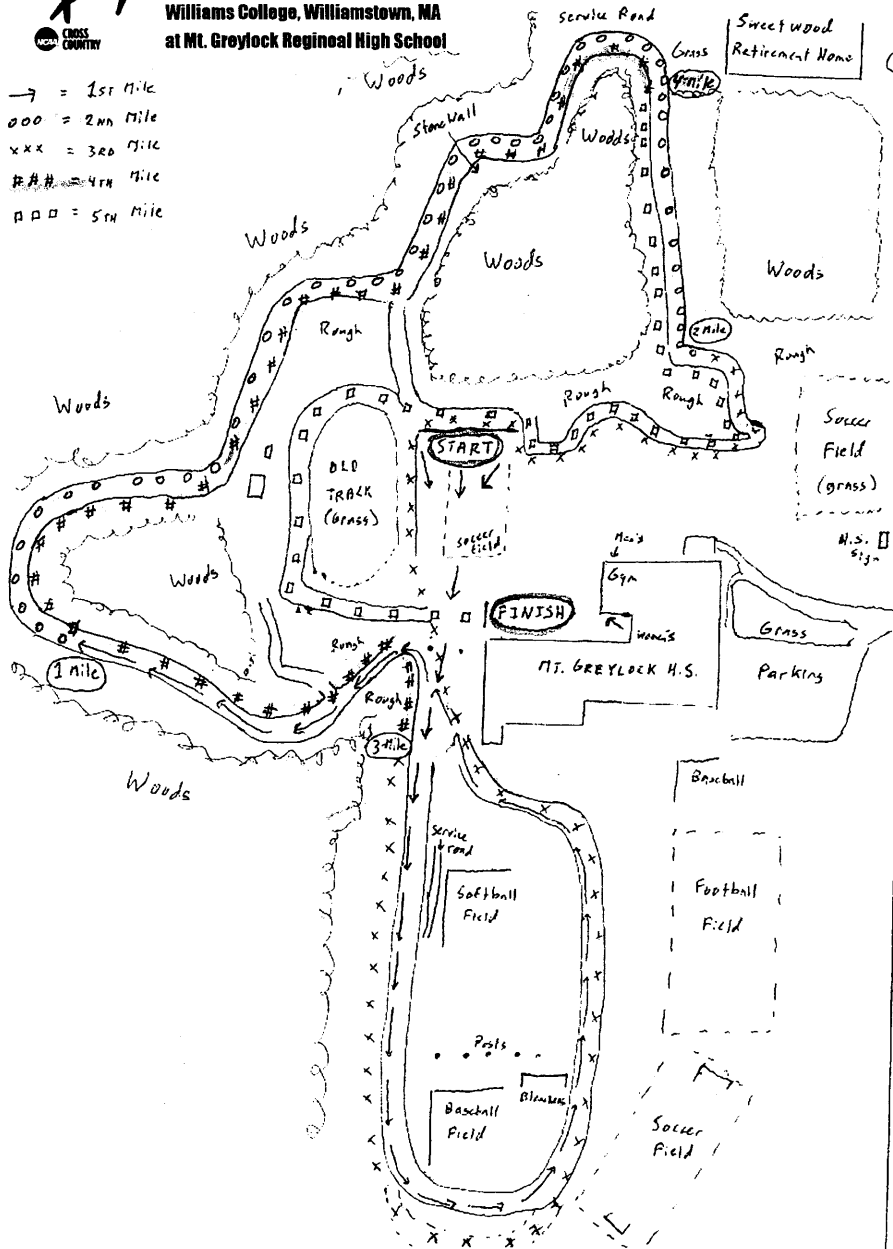 Williams College, Williamstown, MA
at Mt. Greylock Reginoal High School
NCAA CROSS
COUNTRY
→ = 1ST Mile
ooo = 2ND Mile
xxx = 3RD Mile
### = 4TH Mile
□□□ = 5TH Mile
Service Road
Sweetwood
Retirement Home
Grass
4-Mile
Woods
Stonewall
Woods
Woods
Woods
Woods
Rough
2 Mile
Rough
Woods
Rough
Rough
Soccer
Field
(grass)
START
OLD
TRACK
(Grass)
Soccer
field
H.S.
Sign
Men's
Gym
Woods
FINISH
Women's
Grass
Rough
1 Mile
MT. GREYLOCK H.S.
Parking
Rough
3-Mile
Woods
Baseball
Service
road
Softball
Field
Football
Field
Posts
Bleachers
Baseball
Field
Soccer
Field